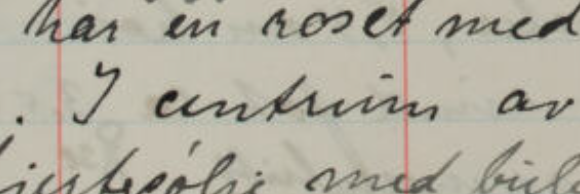 har en roset med
. I centrum av
med